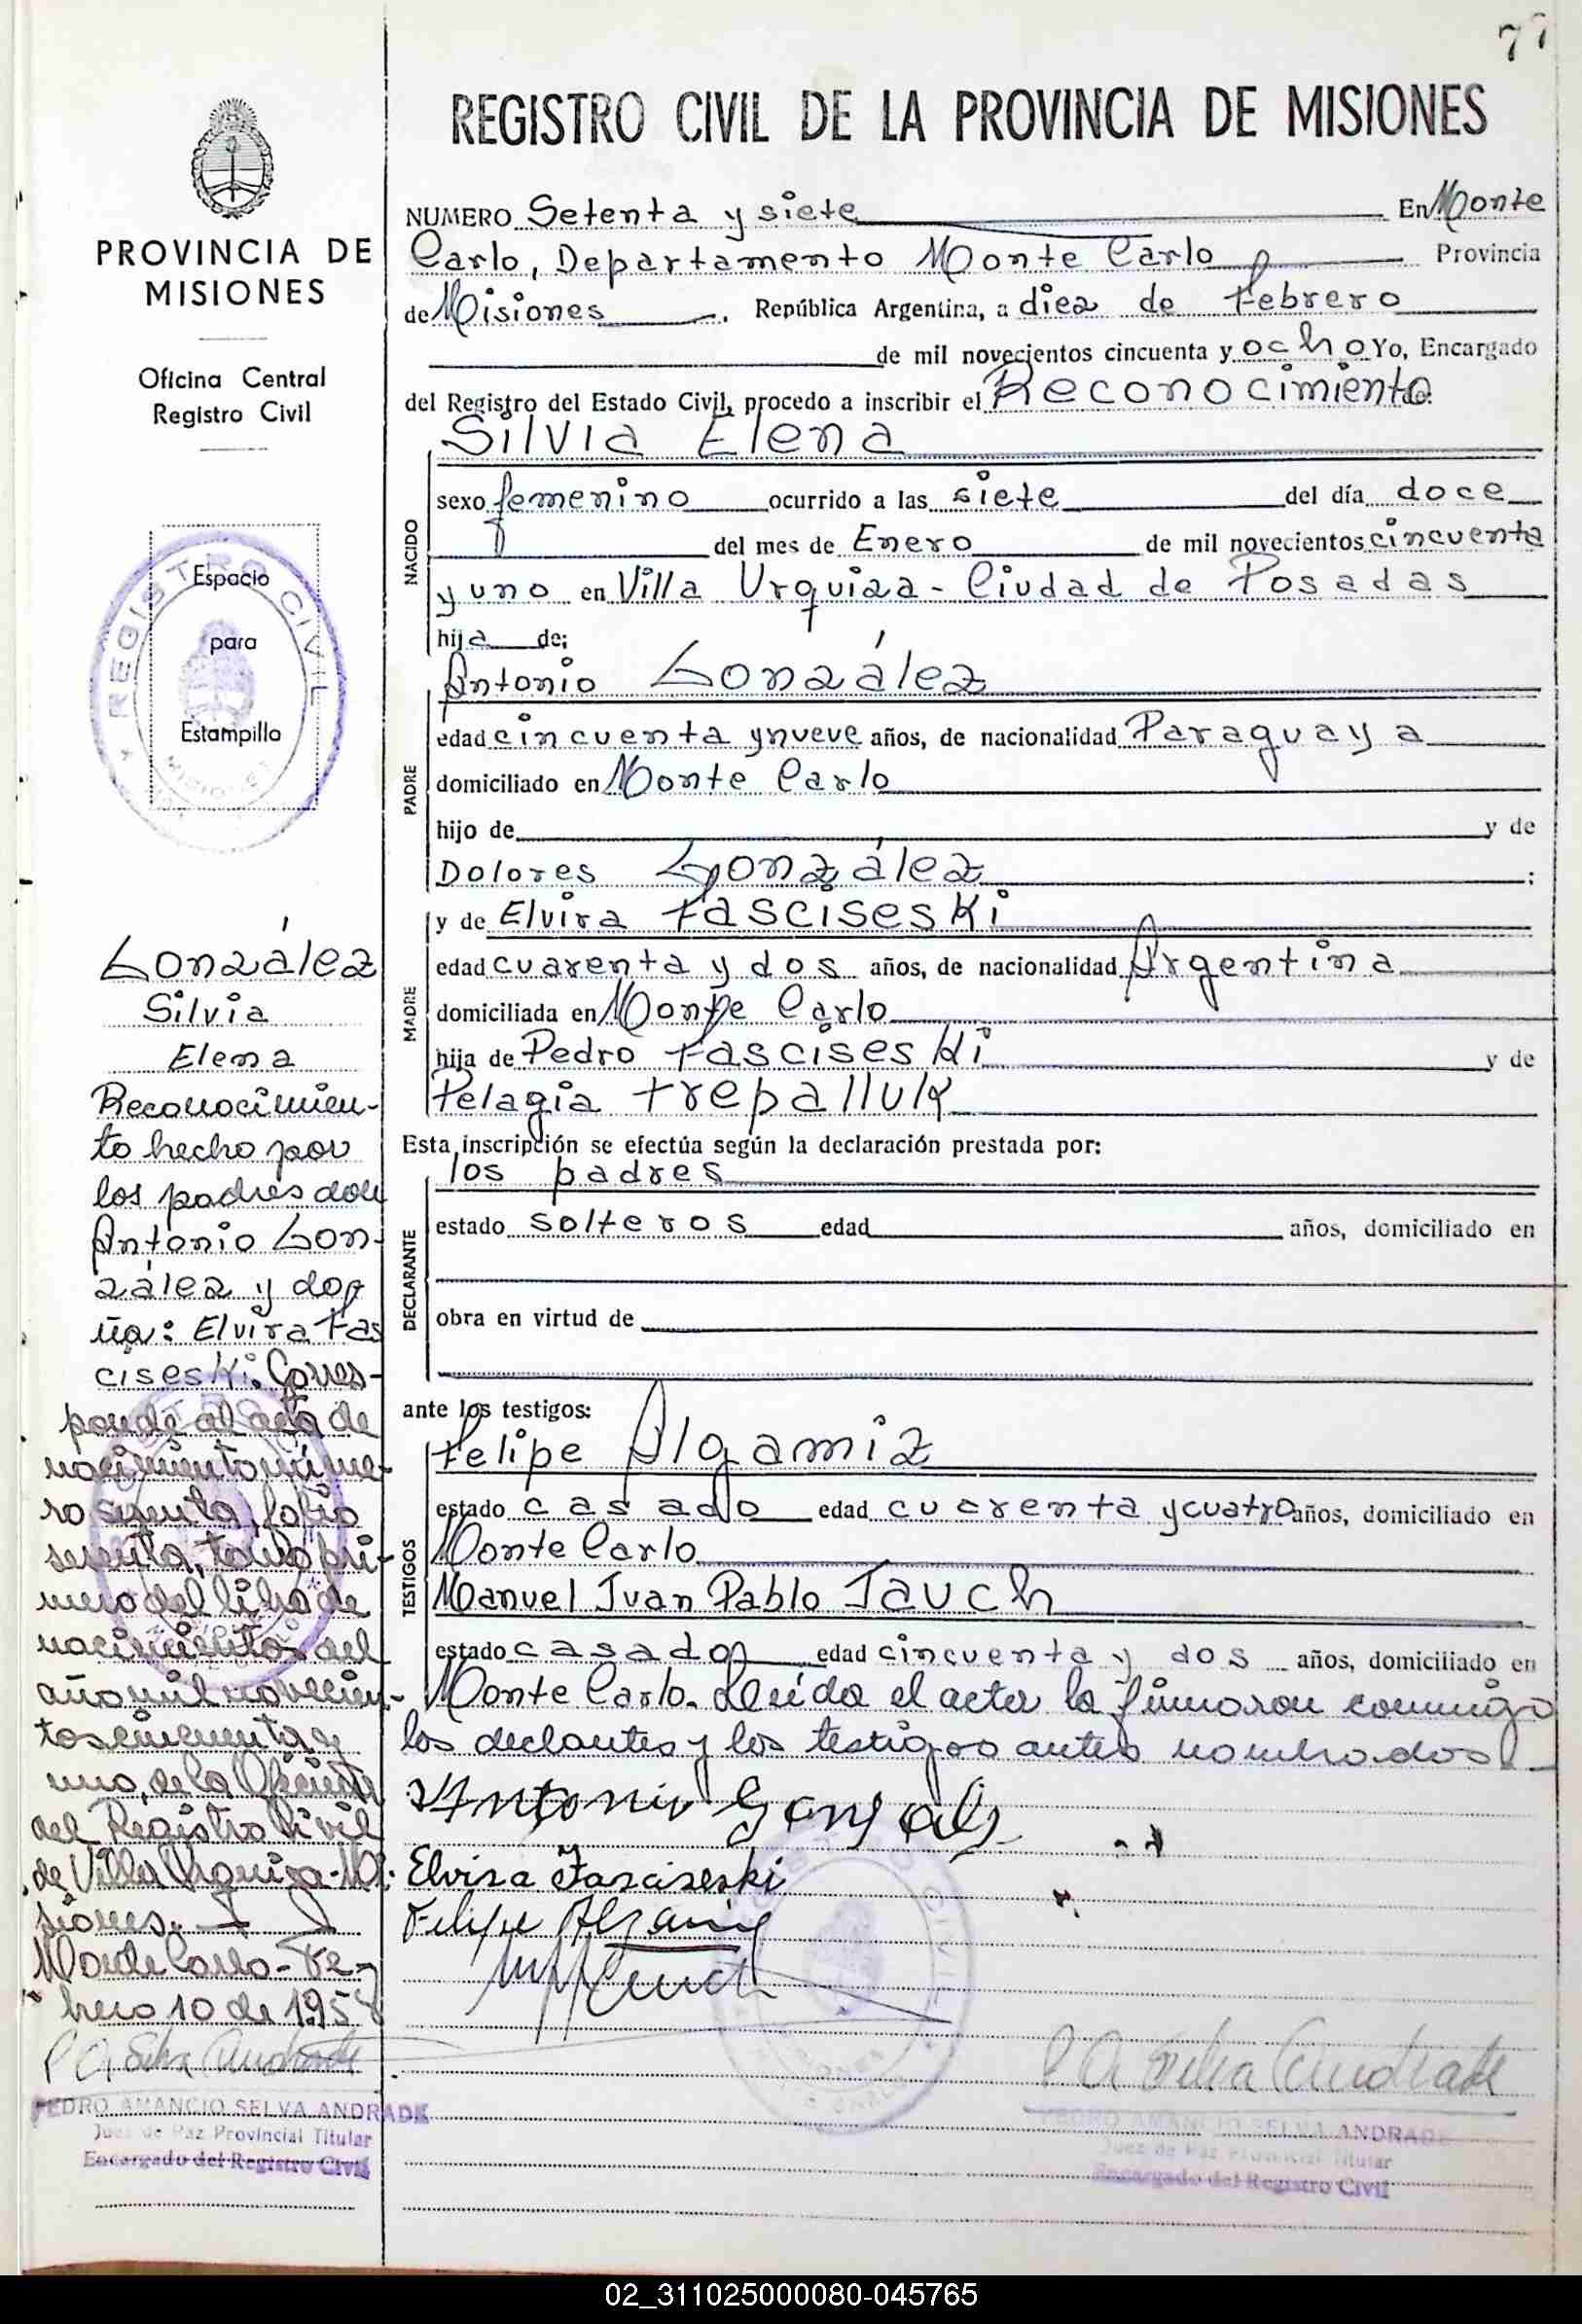 77
REGISTRO CIVIL DE LA PROVINCIA DE MISIONES
PROVINCIA DE
MISIONES
Oficina Central
Registro Civil
REGISTRO CIVIL
MISIONES
Espacio
para
Estampilla
González
Silvia
Elena
Reconocimien-
to hecho por
los padres don
Antonio Gon-
zález y do-
ña: Elvira Fas
ciseski. Corres-
ponde al acta de
nacimiento núme-
ro sesenta, folio
sesenta, tomo pri-
mero del libro de
nacimientos del
año mil novecien-
tos cincuenta y
uno, de la Oficina
del Registro Civil
de Villa Urquiza-Mi-
siones.
Monte Carlo-Fe-
brero 10 de 1958
P A Selva Andrade
PEDRO AMANCIO SELVA ANDRADE
Juez de Paz Provincial Titular
Encargado del Registro Civil
NUMERO Setenta y siete En Monte
Carlo, Departamento Monte Carlo Provincia
de Misiones, República Argentina, a diez de Febrero
de mil novecientos cincuenta y ocho Yo, Encargado
del Registro del Estado Civil, procedo a inscribir el Reconocimiento de:
Silvia Elena
NACIDO
sexo femenino ocurrido a las siete del día doce
del mes de Enero de mil novecientos cincuenta
y uno en Villa Urquiza - Ciudad de Posadas
hija de;
Antonio González
PADRE
edad cincuenta y nueve años, de nacionalidad Paraguaya
domiciliado en Monte Carlo
hijo de y de
Dolores González ;
y de Elvira Fasciseski
MADRE
edad cuarenta y dos años, de nacionalidad Argentina
domiciliada en Monte Carlo
hija de Pedro Fasciseski y de
Pelagia Trepalluk
Esta inscripción se efectúa según la declaración prestada por:
los padres
DECLARANTE
estado solteros edad años, domiciliado en
obra en virtud de
ante los testigos:
Felipe Algamiz
TESTIGOS
estado casado edad cuarenta y cuatro años, domiciliado en
Monte Carlo
Manuel Juan Pablo Tauch
estado casado edad cincuenta y dos años, domiciliado en
Monte Carlo. Leída el acta la firmaron conmigo
los declantes y los testigos antes nombrados
Antonio Gonzalz
Elvira Fasciseski
Felipe Algamiz
P A Selva Andrade
PEDRO AMANCIO SELVA ANDRADE
Juez de Paz Provincial Titular
Encargado del Registro Civil
02_311025000080-045765